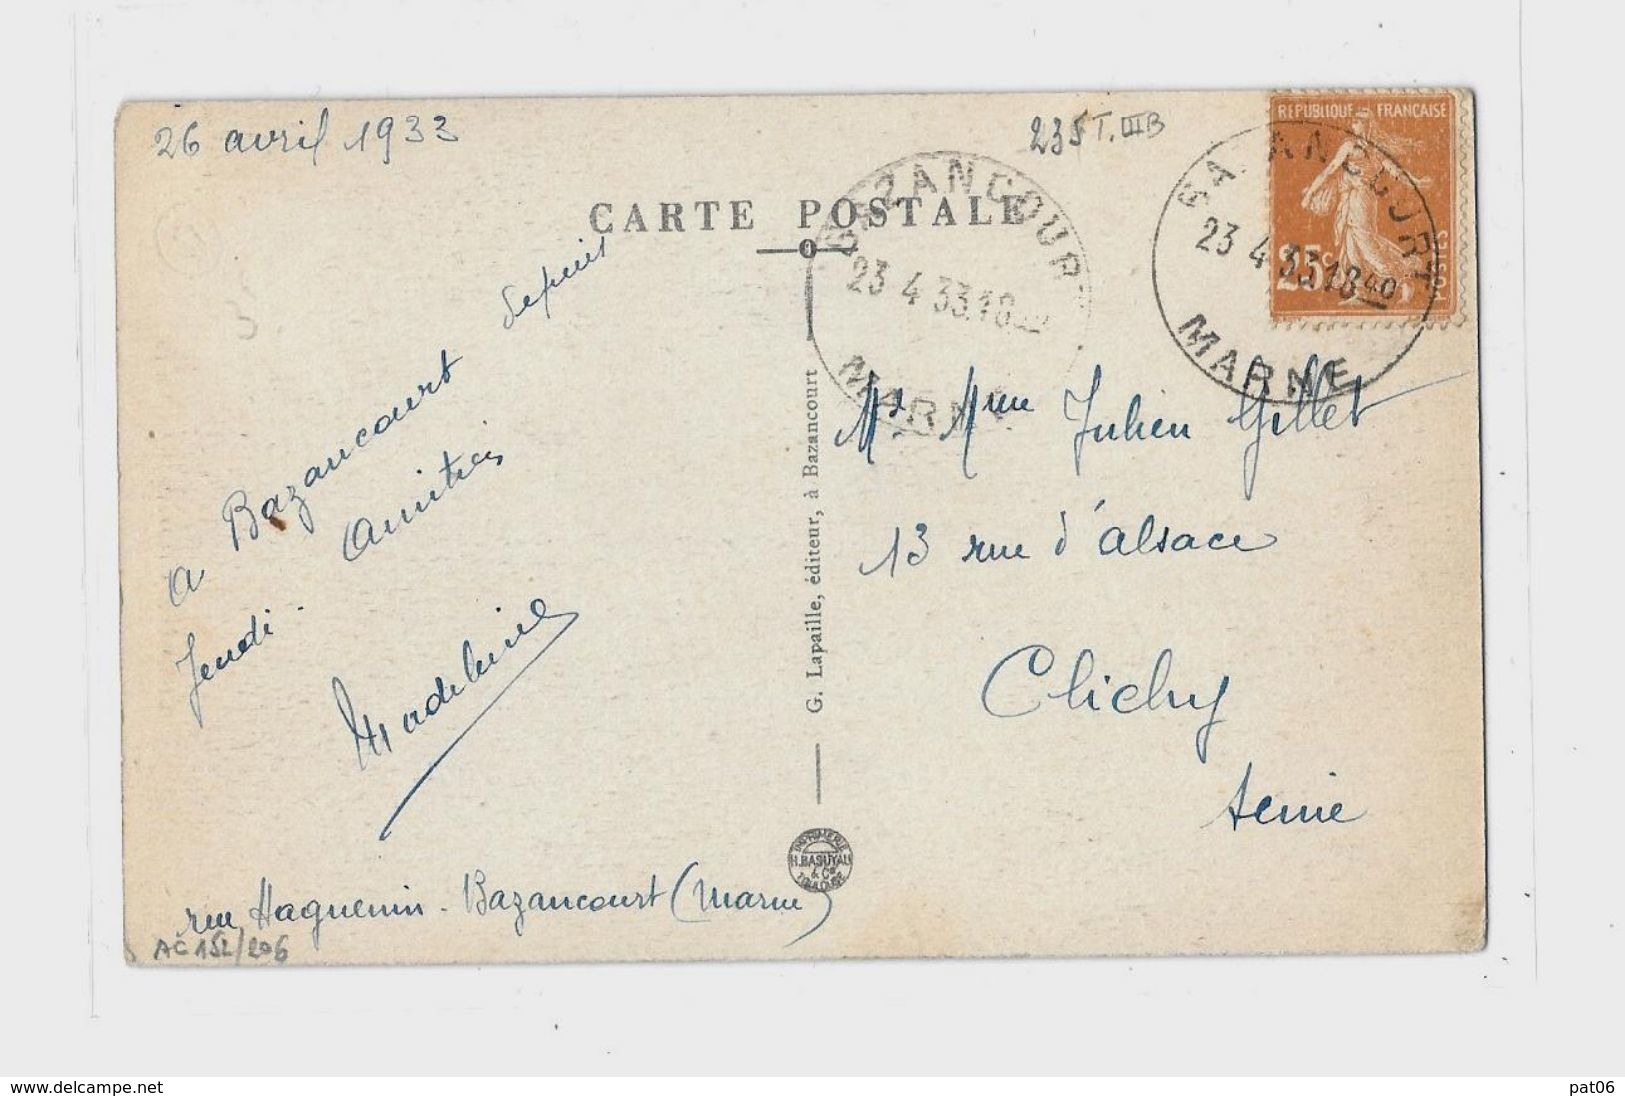 26 avril 1933
235 T.IIIB
REPUBLIQUE FRANCAISE
25c
POSTES
BAZANCOURT
23 4 33.18 40
MARNE
BAZANCOURT
23 4 33.18
MARNE
CARTE POSTALE
a Bazancourt depuis
Jeudi. Amitiés
Madeleine
rue Haguenin - Bazancourt (Marne)
AC 152/206
G. Lapaille, éditeur, à Bazancourt
IMPRIMERIE
H. BASUYAU
& Cie
TOULOUSE
Mr Mme Julien Gillet
13 rue d'alsace
Clichy
Seine
www.delcampe.net
pat06